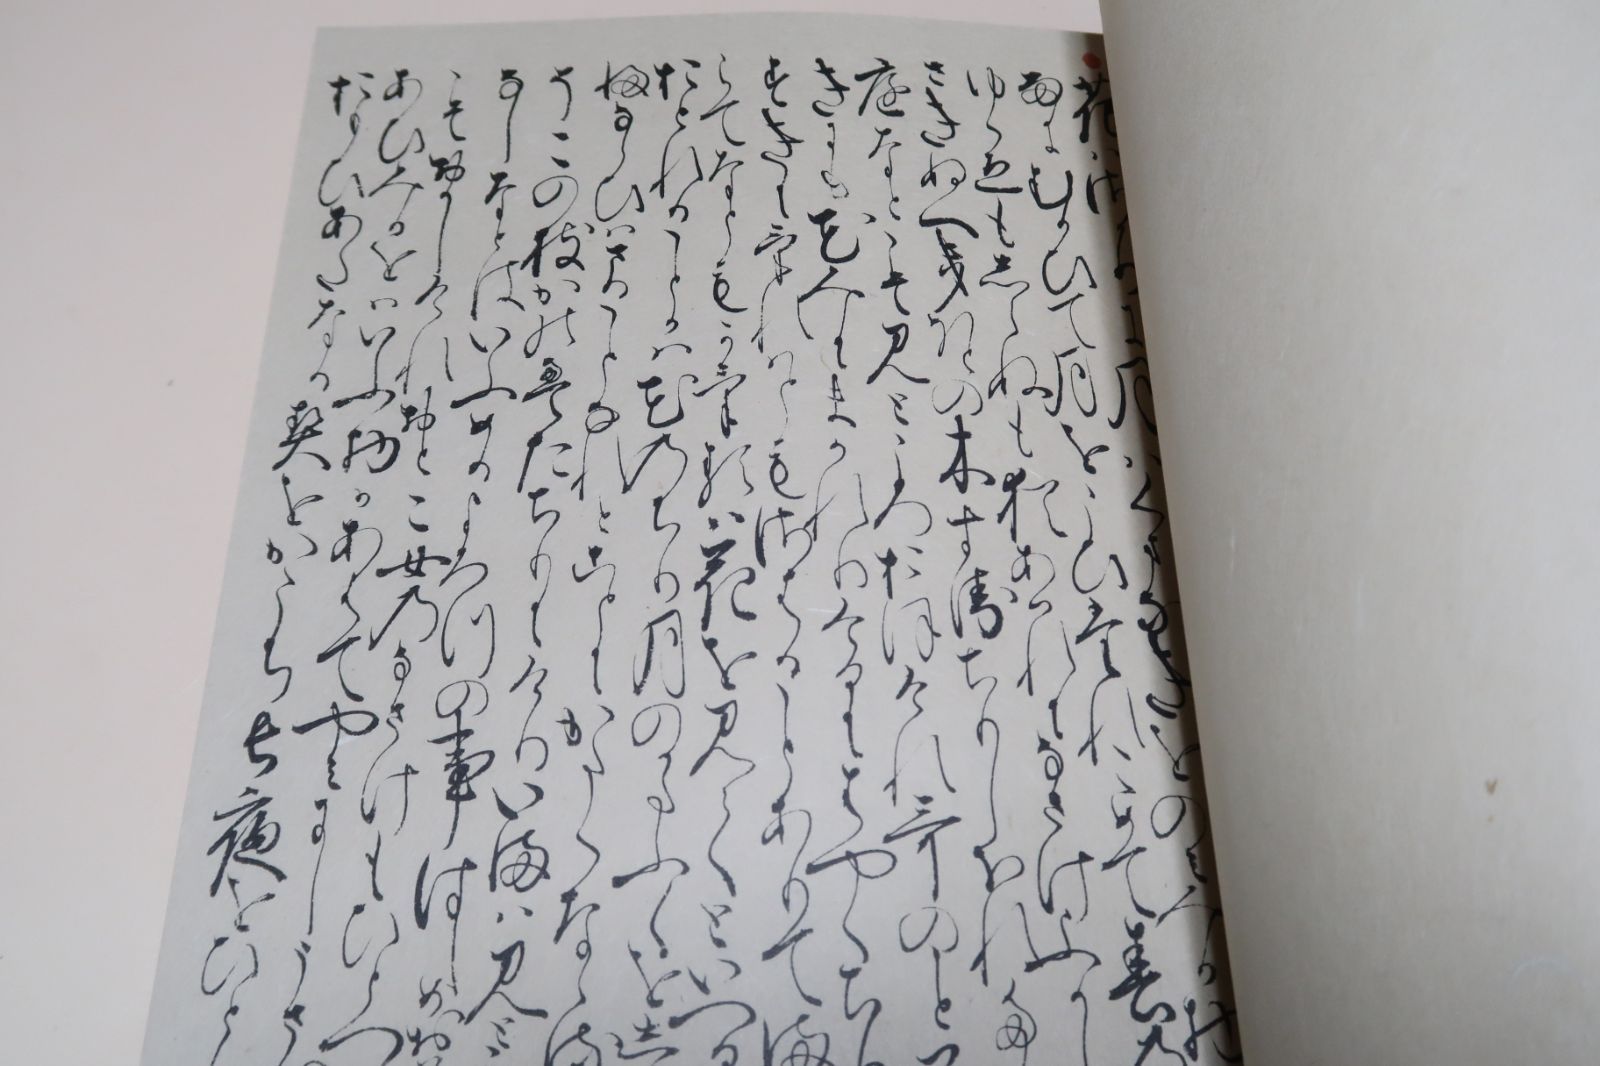 花はさかりに月はくまなきをのみみるもの
雨にむかひて月をこひたれこめて春の
ゆくゑもしらぬも猶あはれになさけふかし
さきぬへきほとの木すゑちりしほれた
庭なとこそ見ところおほけれ哥のことは
きにも花みにまかれりけるにはやくちり
すきにけれはともさはることありてま
らてなともかけるは花を見てといへる
おとれることかは花のちり月のかたふくをし
ならひはさることなれとことにかたくななる
そこの枝かのえたちりにけりいまは見と
なしなとはいふめるよろつの事もはしめお
こそおかしけれおとこ女のなさけもひとへ
あひみるをはいふ物かはあはてやみにしうさ
おもひあたなる契をかこち長夜をひとり